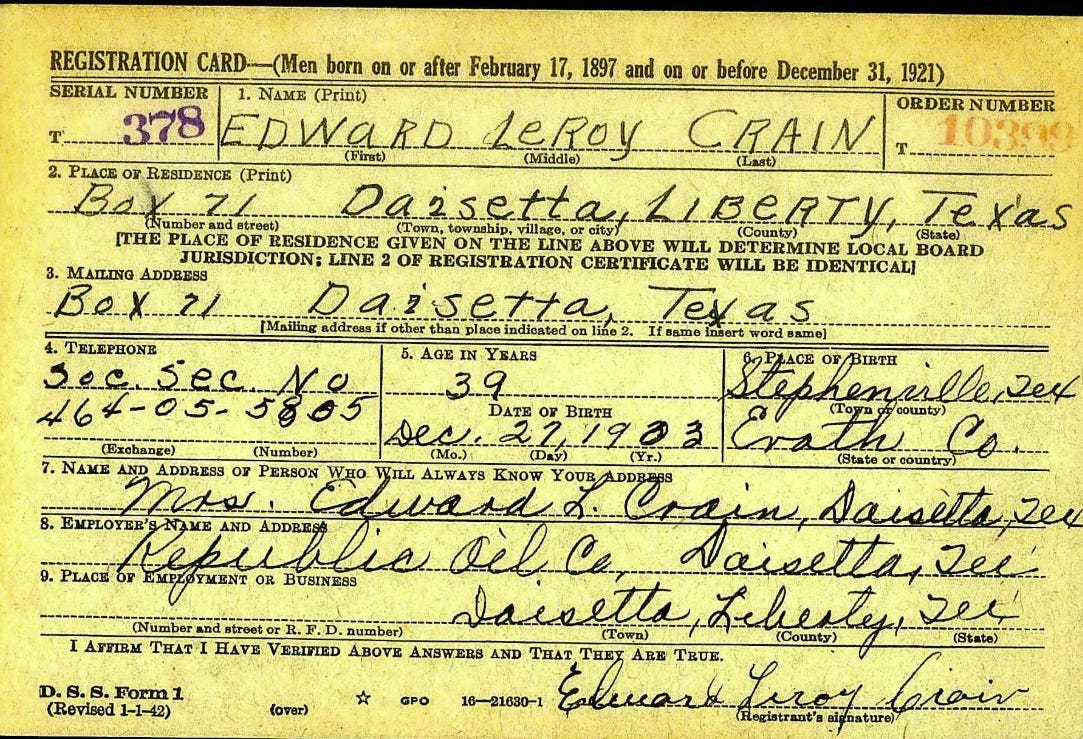 REGISTRATION CARD—(Men born on or after February 17, 1897 and on or before December 31, 1921)
SERIAL NUMBER 1. NAME (Print) ORDER NUMBER
T 378 EDWARD LeROY CRAIN T 10399
(First) (Middle) (Last)
2. PLACE OF RESIDENCE (Print)
Box 71 Daisetta, LIBERTY, Texas
(Number and street) (Town, township, village, or city) (County) (State)
[THE PLACE OF RESIDENCE GIVEN ON THE LINE ABOVE WILL DETERMINE LOCAL BOARD
JURISDICTION; LINE 2 OF REGISTRATION CERTIFICATE WILL BE IDENTICAL]
3. MAILING ADDRESS
Box 71 Daisetta, Texas
[Mailing address if other than place indicated on line 2. If same insert word same]
4. TELEPHONE 5. AGE IN YEARS 6. PLACE OF BIRTH
Soc. Sec. No 39 Stephenville, Tex
(Town or county)
464-05-5805 DATE OF BIRTH
Dec. 27, 1903 Erath Co.
(Exchange) (Number) (Mo.) (Day) (Yr.) (State or country)
7. NAME AND ADDRESS OF PERSON WHO WILL ALWAYS KNOW YOUR ADDRESS
Mrs. Edward L. Crain, Daisetta, Tex
8. EMPLOYER'S NAME AND ADDRESS
Republic Oil Co, Daisetta, Tex
9. PLACE OF EMPLOYMENT OR BUSINESS
Daisetta, Liberty, Tex
(Number and street or R. F. D. number) (Town) (County) (State)
I AFFIRM THAT I HAVE VERIFIED ABOVE ANSWERS AND THAT THEY ARE TRUE.
D. S. S. Form 1
(Revised 1-1-42) (over) ☆ GPO 16—21630-1 Edward Leroy Crain
(Registrant's signature)